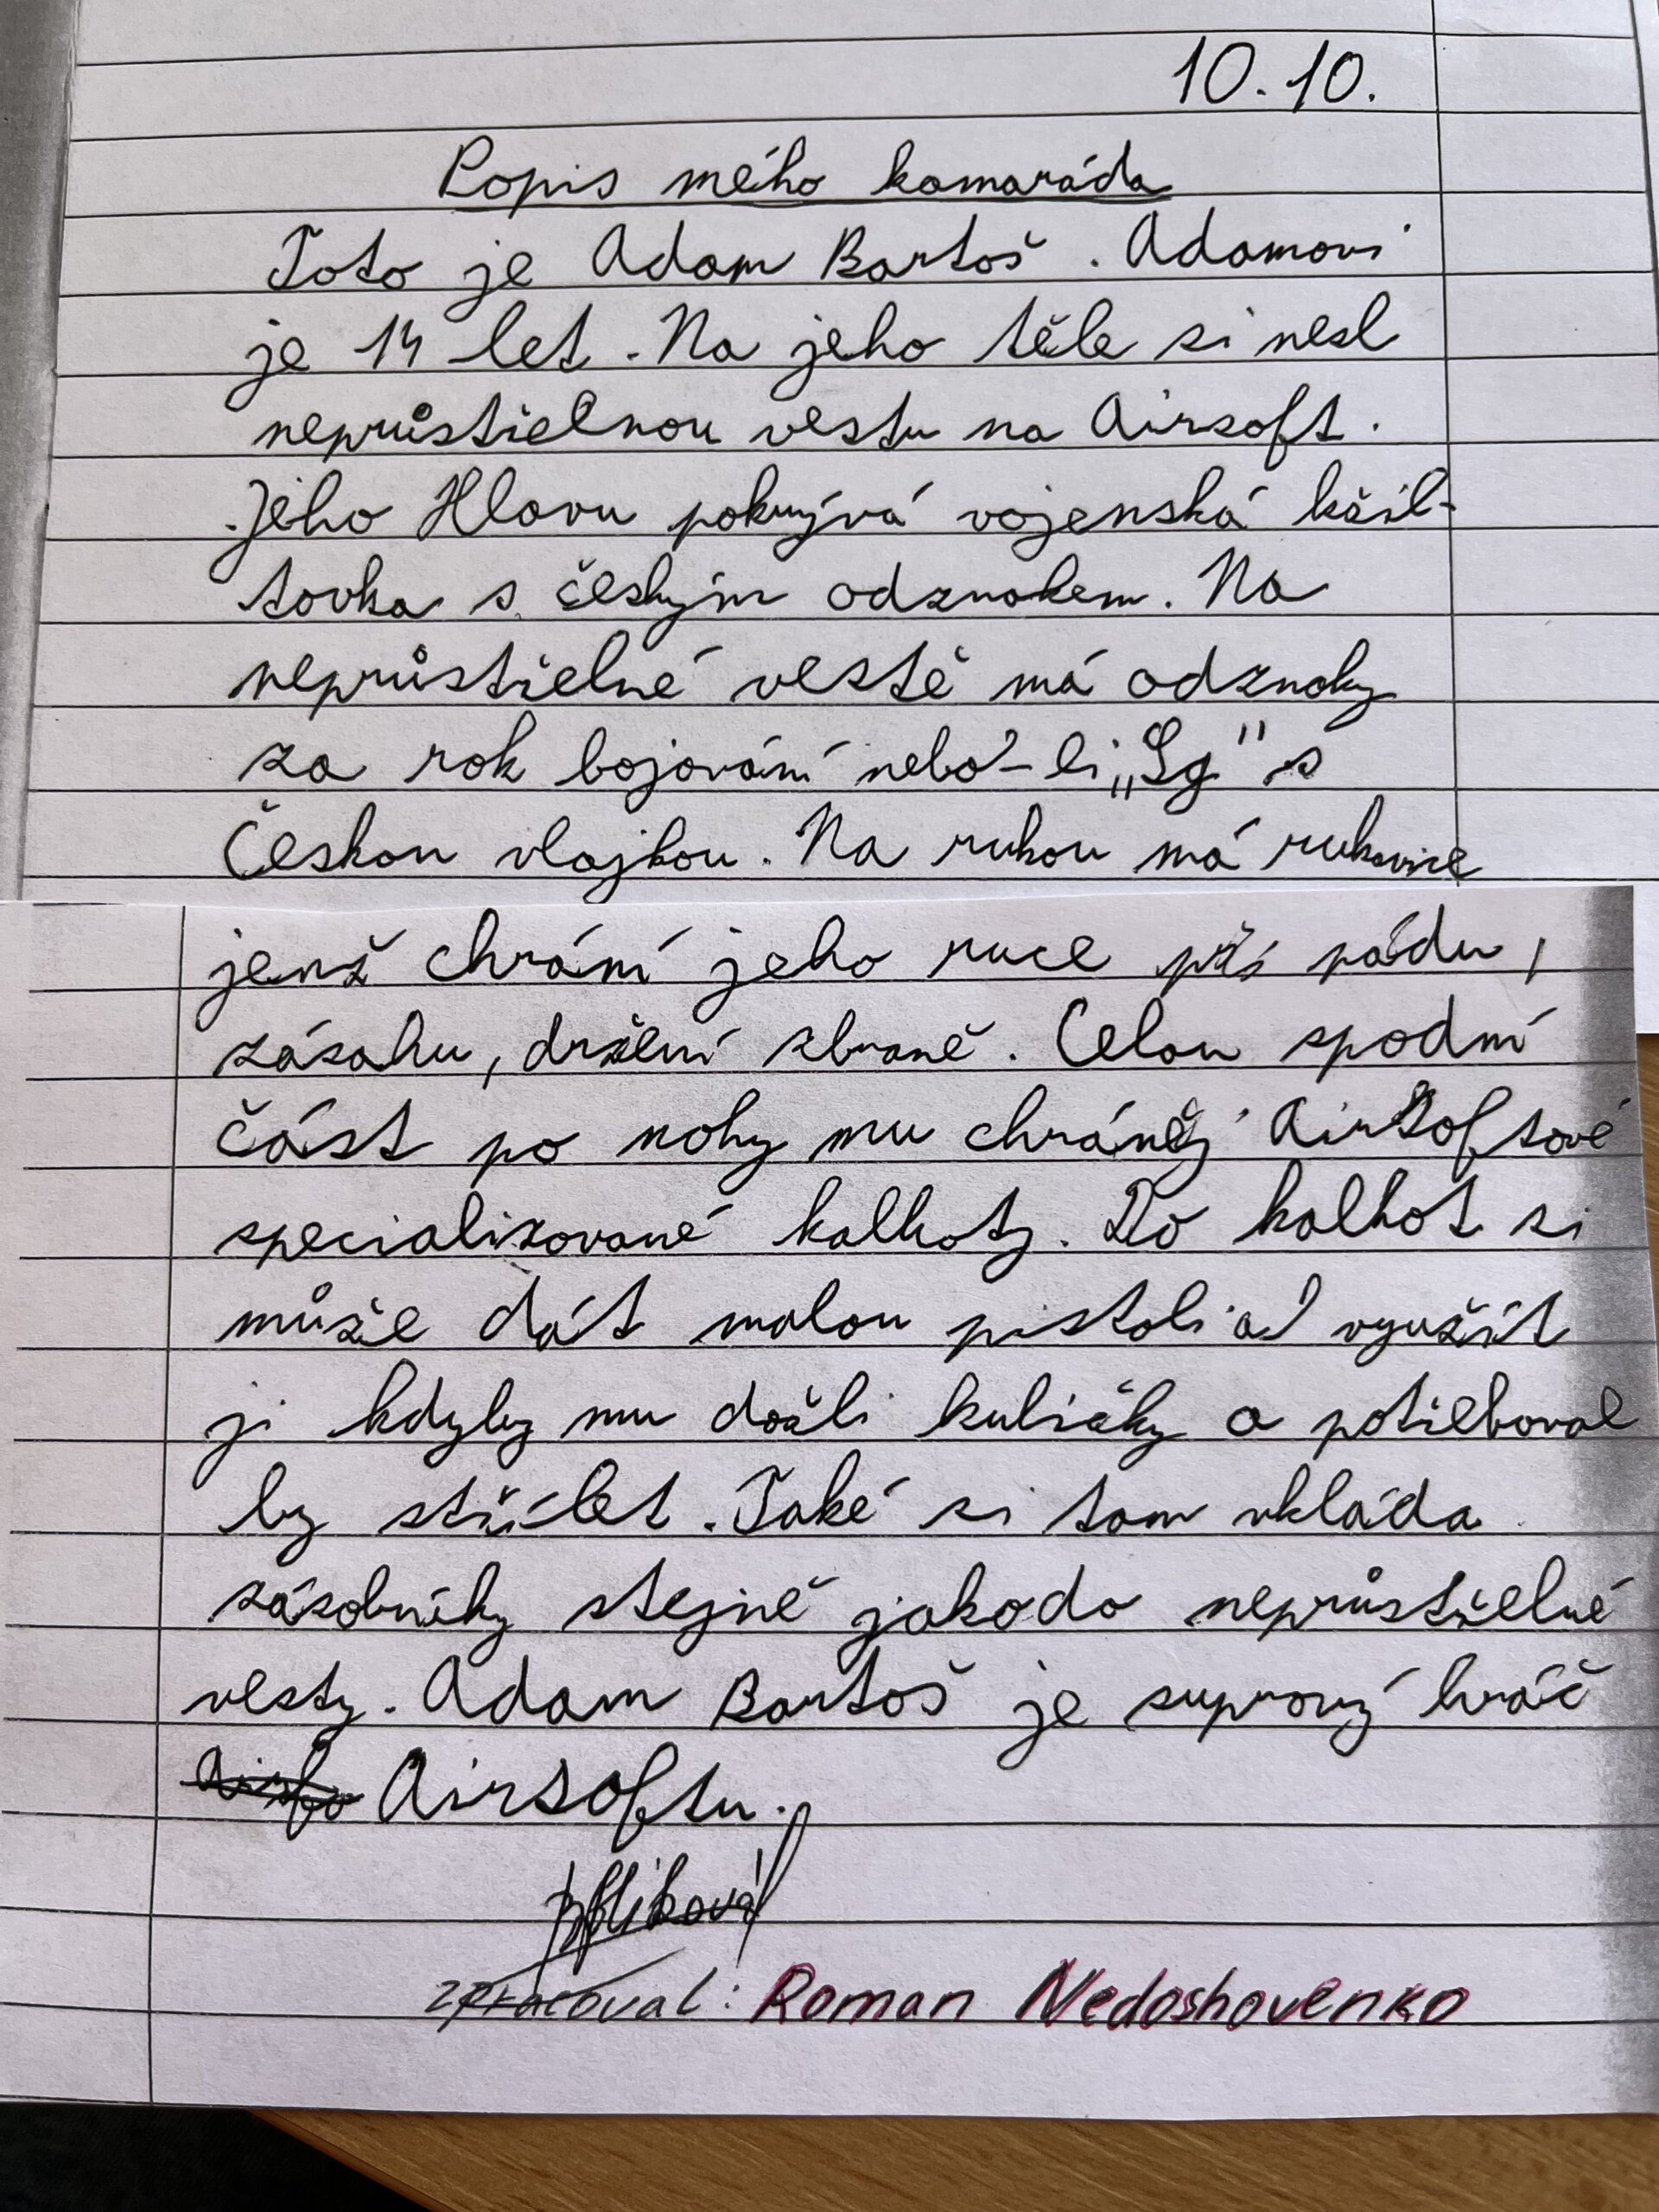 10.10.
Popis mého kamaráda
Toto je Adam Bartoš. Adamovi
je 14 let. Na jeho těle si nesl
neprůstřelnou vestu na Airsoft.
Jeho Hlavu pokrývá vojenská kšil-
tovka s českým odznakem. Na
neprůstřelné vestě má odznaky
za rok bojování nebo-li „Sg" s
Českou vlajkou. Na rukou má rukavice
jenž chrání jeho ruce při pádu,
zásahu, držení zbraně. Celou spodní
část po nohy mu chrání Airsoftové
specializované kalhoty. Do kalhot si
může dát malou pistoli a využít
ji kdyby mu došli kuličky a potřeboval
by střílet. Také si tam vkládá
zásobníky stejně jako do neprůstřelné
vesty. Adam Bartoš je suprový hráč
Airsoftu.
zpracoval: Roman Nedoshovenko